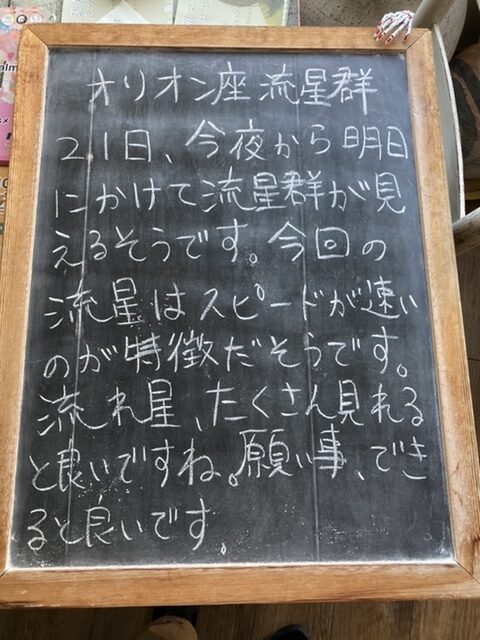 オリオン座流星群
21日、今夜から明日
にかけて流星群が見
えるそうです。今回の
流星はスピードが速い
のが特徴だそうです。
流れ星、たくさん見れる
と良いですね。願い事、でき
ると良いです。